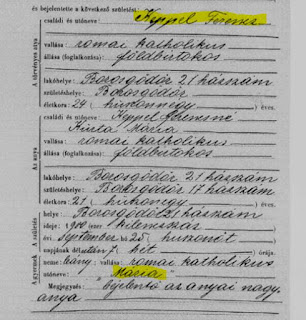 és bejelentette a következő születést:
családi és utóneve: Keppel Ferencz
vallása: római katholikus
állása (foglalkozása): földbirtokos
lakóhelye: Borosgödör 21 házszám
születéshelye: Borosgödör
életkora: 24 (huszonnégy) éves.
családi és utóneve: Keppel Ferencné
Kiuta Mária
vallása: római katholikus
állása (foglalkozása): földbirtokos
lakóhelye: Borosgödör 21 házszám
születéshelye: Borosgödör 17 házszám
életkora: 21 (huszonegy) éves.
helye: Borosgödör 21 házszám
ideje: 1910 (ezer kilencszáz
évi szeptember hó 25 (huszonöt)
napjának délután 7 hét órája.
neme: leány; vallása: római katholikus
utóneve: "Mária"
Megjegyzés: bejelentő az anyai nagy
anya
A törvényes atya
Az anya
A gyermek
A születés